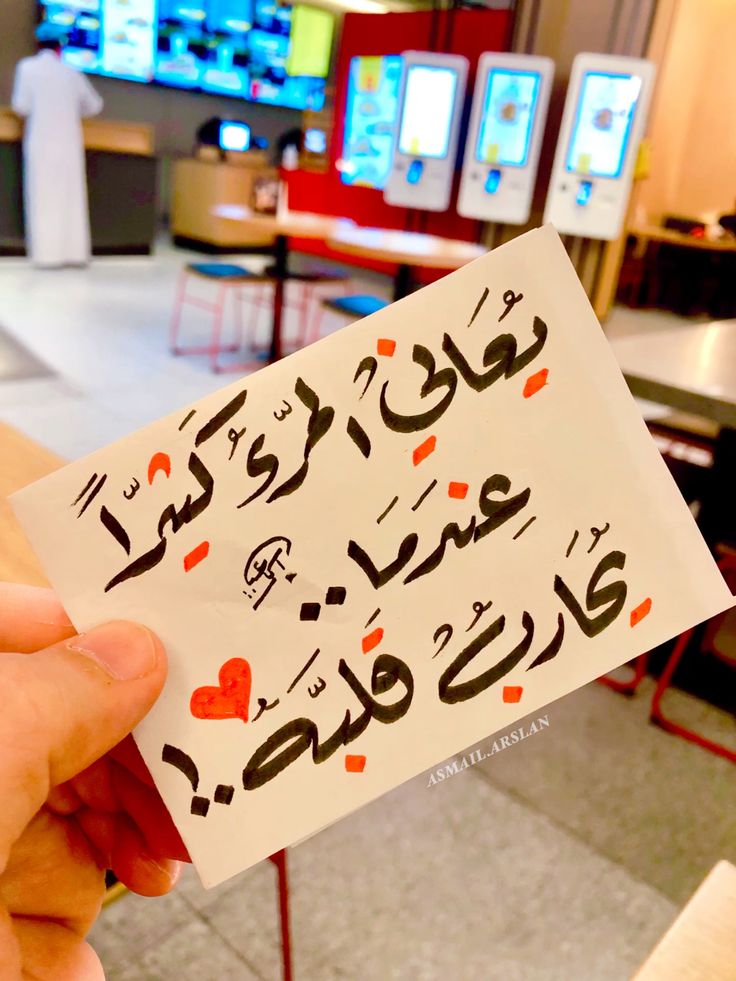 يُعَاني المَرّءُ كَثيرّاً
عِندَمَا..
يُحَاربُ قَلبَّهُ..!
ASMAIL.ARSLAN